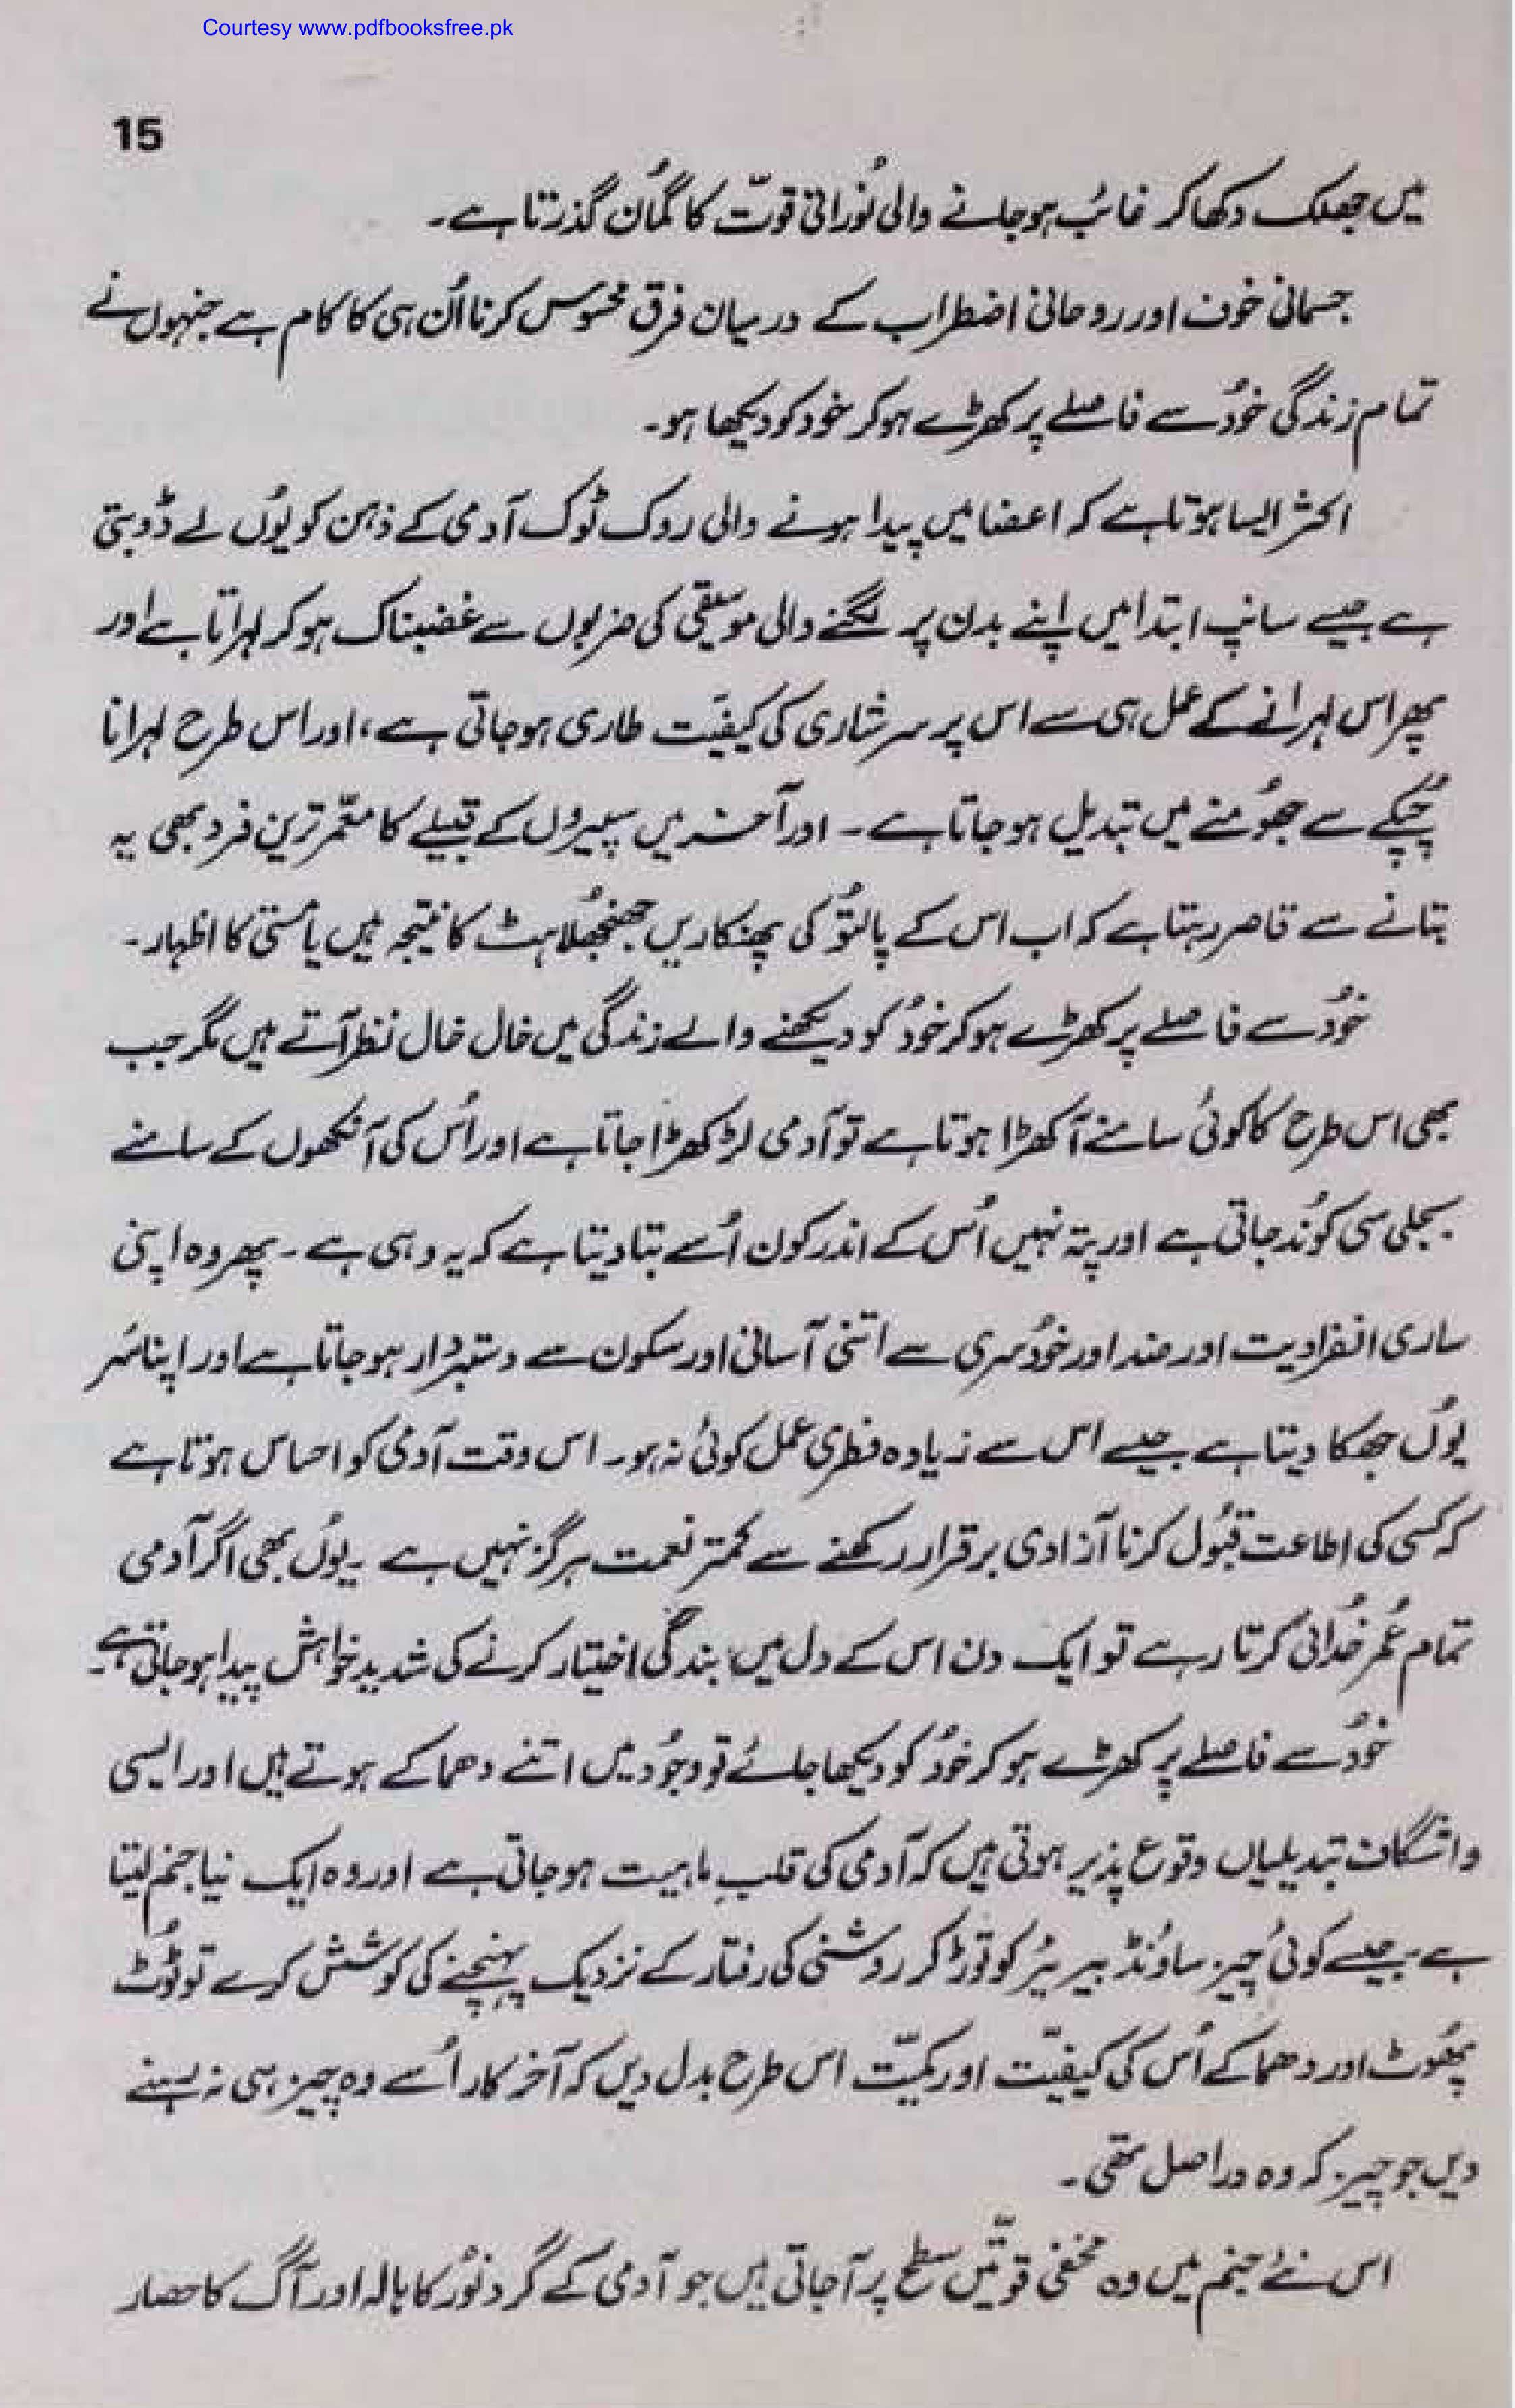 Courtesy www.pdfbooksfree.pk
15
میں جھلک دکھا کر غائب ہو جانے والی نُورانی قوّت کا گمُان گذرتا ہے۔
جسمانی خوف اور روحانی اضطراب کے درمیان فرق محسُوس کرنا اُن ہی کا کام ہے جنہوں نے
تمام زندگی خوُد سے فاصلے پر کھڑے ہو کر خود کو دیکھا ہو۔
اکثر ایسا ہوتا ہے کہ اعضا میں پیدا ہونے والی روک ٹوک آدمی کے ذہن کو یوُں لے ڈوبتی
ہے جیسے سانپ ابتدا میں اپنے بدن پر لگنے والی موسیقی کی ضربوں سے غضبناک ہو کر لہراتا ہے اور
پھر اس لہرانے کے عمل ہی سے اس پر سرشاری کی کیفیّت طاری ہو جاتی ہے، اور اس طرح لہرانا
چُپکے سے جھوُمنے میں تبدیل ہو جاتا ہے۔ اور آخر میں سپیروں کے قبیلے کا معمّر ترین فرد بھی یہ
بتانے سے قاصر رہتا ہے کہ اب اس کے پالتوُ کی پھنکاریں جھنجھُلاہٹ کا نتیجہ ہیں یا مستی کا اظہار۔
خوُد سے فاصلے پر کھڑے ہو کر خوُد کو دیکھنے والے زندگی میں خال خال نظر آتے ہیں مگر جب
بھی اس طرح کا کوئی سامنے آ کھڑا ہوتا ہے تو آدمی لڑکھڑا جاتا ہے اور اُس کی آنکھوں کے سامنے
بجلی سی کوُند جاتی ہے اور پتہ نہیں اُس کے اندر کون اُسے بتا دیتا ہے کہ یہ وہی ہے۔ پھر وہ اپنی
ساری انفرادیت اور ضد اور خوُدسری سے اتنی آسانی اور سکون سے دستبردار ہو جاتا ہے اور اپنا سَر
یوُں جھکا دیتا ہے جیسے اس سے زیادہ فطری عمل کوئی نہ ہو۔ اس وقت آدمی کو احساس ہوتا ہے
کہ کسی کی اطاعت قبُول کرنا آزادی برقرار رکھنے سے کمتر نعمت ہرگز نہیں ہے۔ یوُں بھی اگر آدمی
تمام عُمر خُدائی کرتا رہے تو ایک دن اس کے دل میں بندگی اختیار کرنے کی شدید خواہش پیدا ہو جاتی ہے۔
خوُد سے فاصلے پر کھڑے ہو کر خوُد کو دیکھا جائے تو وجوُد میں اتنے دھماکے ہوتے ہیں اور ایسی
واشگاف تبدیلیاں وقوع پذیر ہوتی ہیں کہ آدمی کی قلبِ ماہیت ہو جاتی ہے اور وہ ایک نیا جنم لیتا
ہے۔ جیسے کوئی چیز ساؤنڈ بیریئر کو توڑ کر روشنی کی رفتار کے نزدیک پہنچنے کی کوشش کرے تو ٹوُٹ
پھُوٹ اور دھماکے اُس کی کیفیّت اور کمیّت اس طرح بدل دیں کہ آخر کار اُسے وہ چیز ہی نہ رہنے
دیں جو چیز کہ وہ دراصل تھی۔
اس نئے جنم میں وہ مخفی قوّتیں سطح پر آجاتی ہیں جو آدمی کے گرد نوُر کا ہالہ اور آگ کا حصار